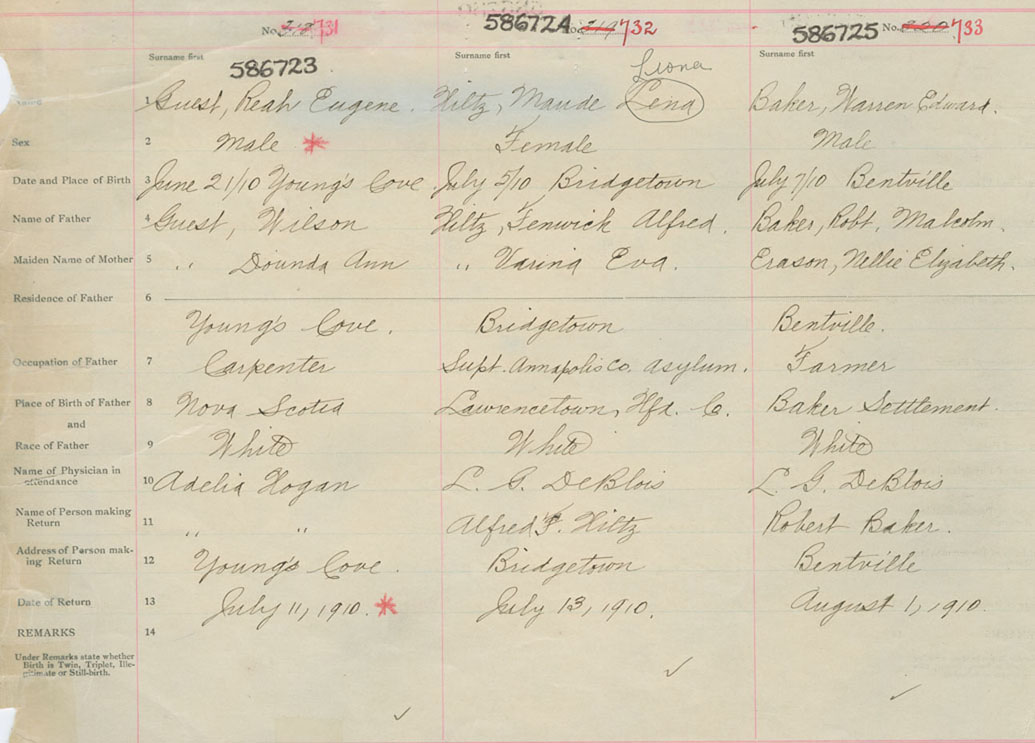 No. 318 731 586724 No. 319 732 586725 No. 320 733
Surname first Surname first Surname first
586723 Leona
1 Guest, Reah Eugene. Hiltz, Maude Lena Baker, Warren Edward.
Sex 2 Male * Female Male
Date and Place of Birth 3 June 21/10 Young's Cove July 5/10 Bridgetown July 7/10 Bentville
Name of Father 4 Guest, Wilson Hiltz, Fenwick Alfred. Baker, Robt. Malcolm.
Maiden Name of Mother 5 " Dounda Ann " Varina Eva. Erason, Nellie Elizabeth.
Residence of Father 6
Young's Cove. Bridgetown Bentville.
Occupation of Father 7 Carpenter Supt. Annapolis Co. Asylum. Farmer
Place of Birth of Father 8 Nova Scotia Lawrencetown, Hfx. C. Baker Settlement.
and
Race of Father 9 White White White
Name of Physician in
attendance 10 Adelia Hogan L. G. DeBlois L. G. DeBlois
Name of Person making
Return 11 " " Alfred F. Hiltz Robert Baker.
Address of Person mak-
ing Return 12 Young's Cove. Bridgetown Bentville
Date of Return 13 July 11, 1910. * July 13, 1910. August 1, 1910.
REMARKS 14
Under Remarks state whether
Birth is Twin, Triplet, Ille-
gitimate or Still-birth.